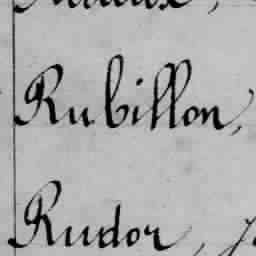 Rubillon,
Rudor,